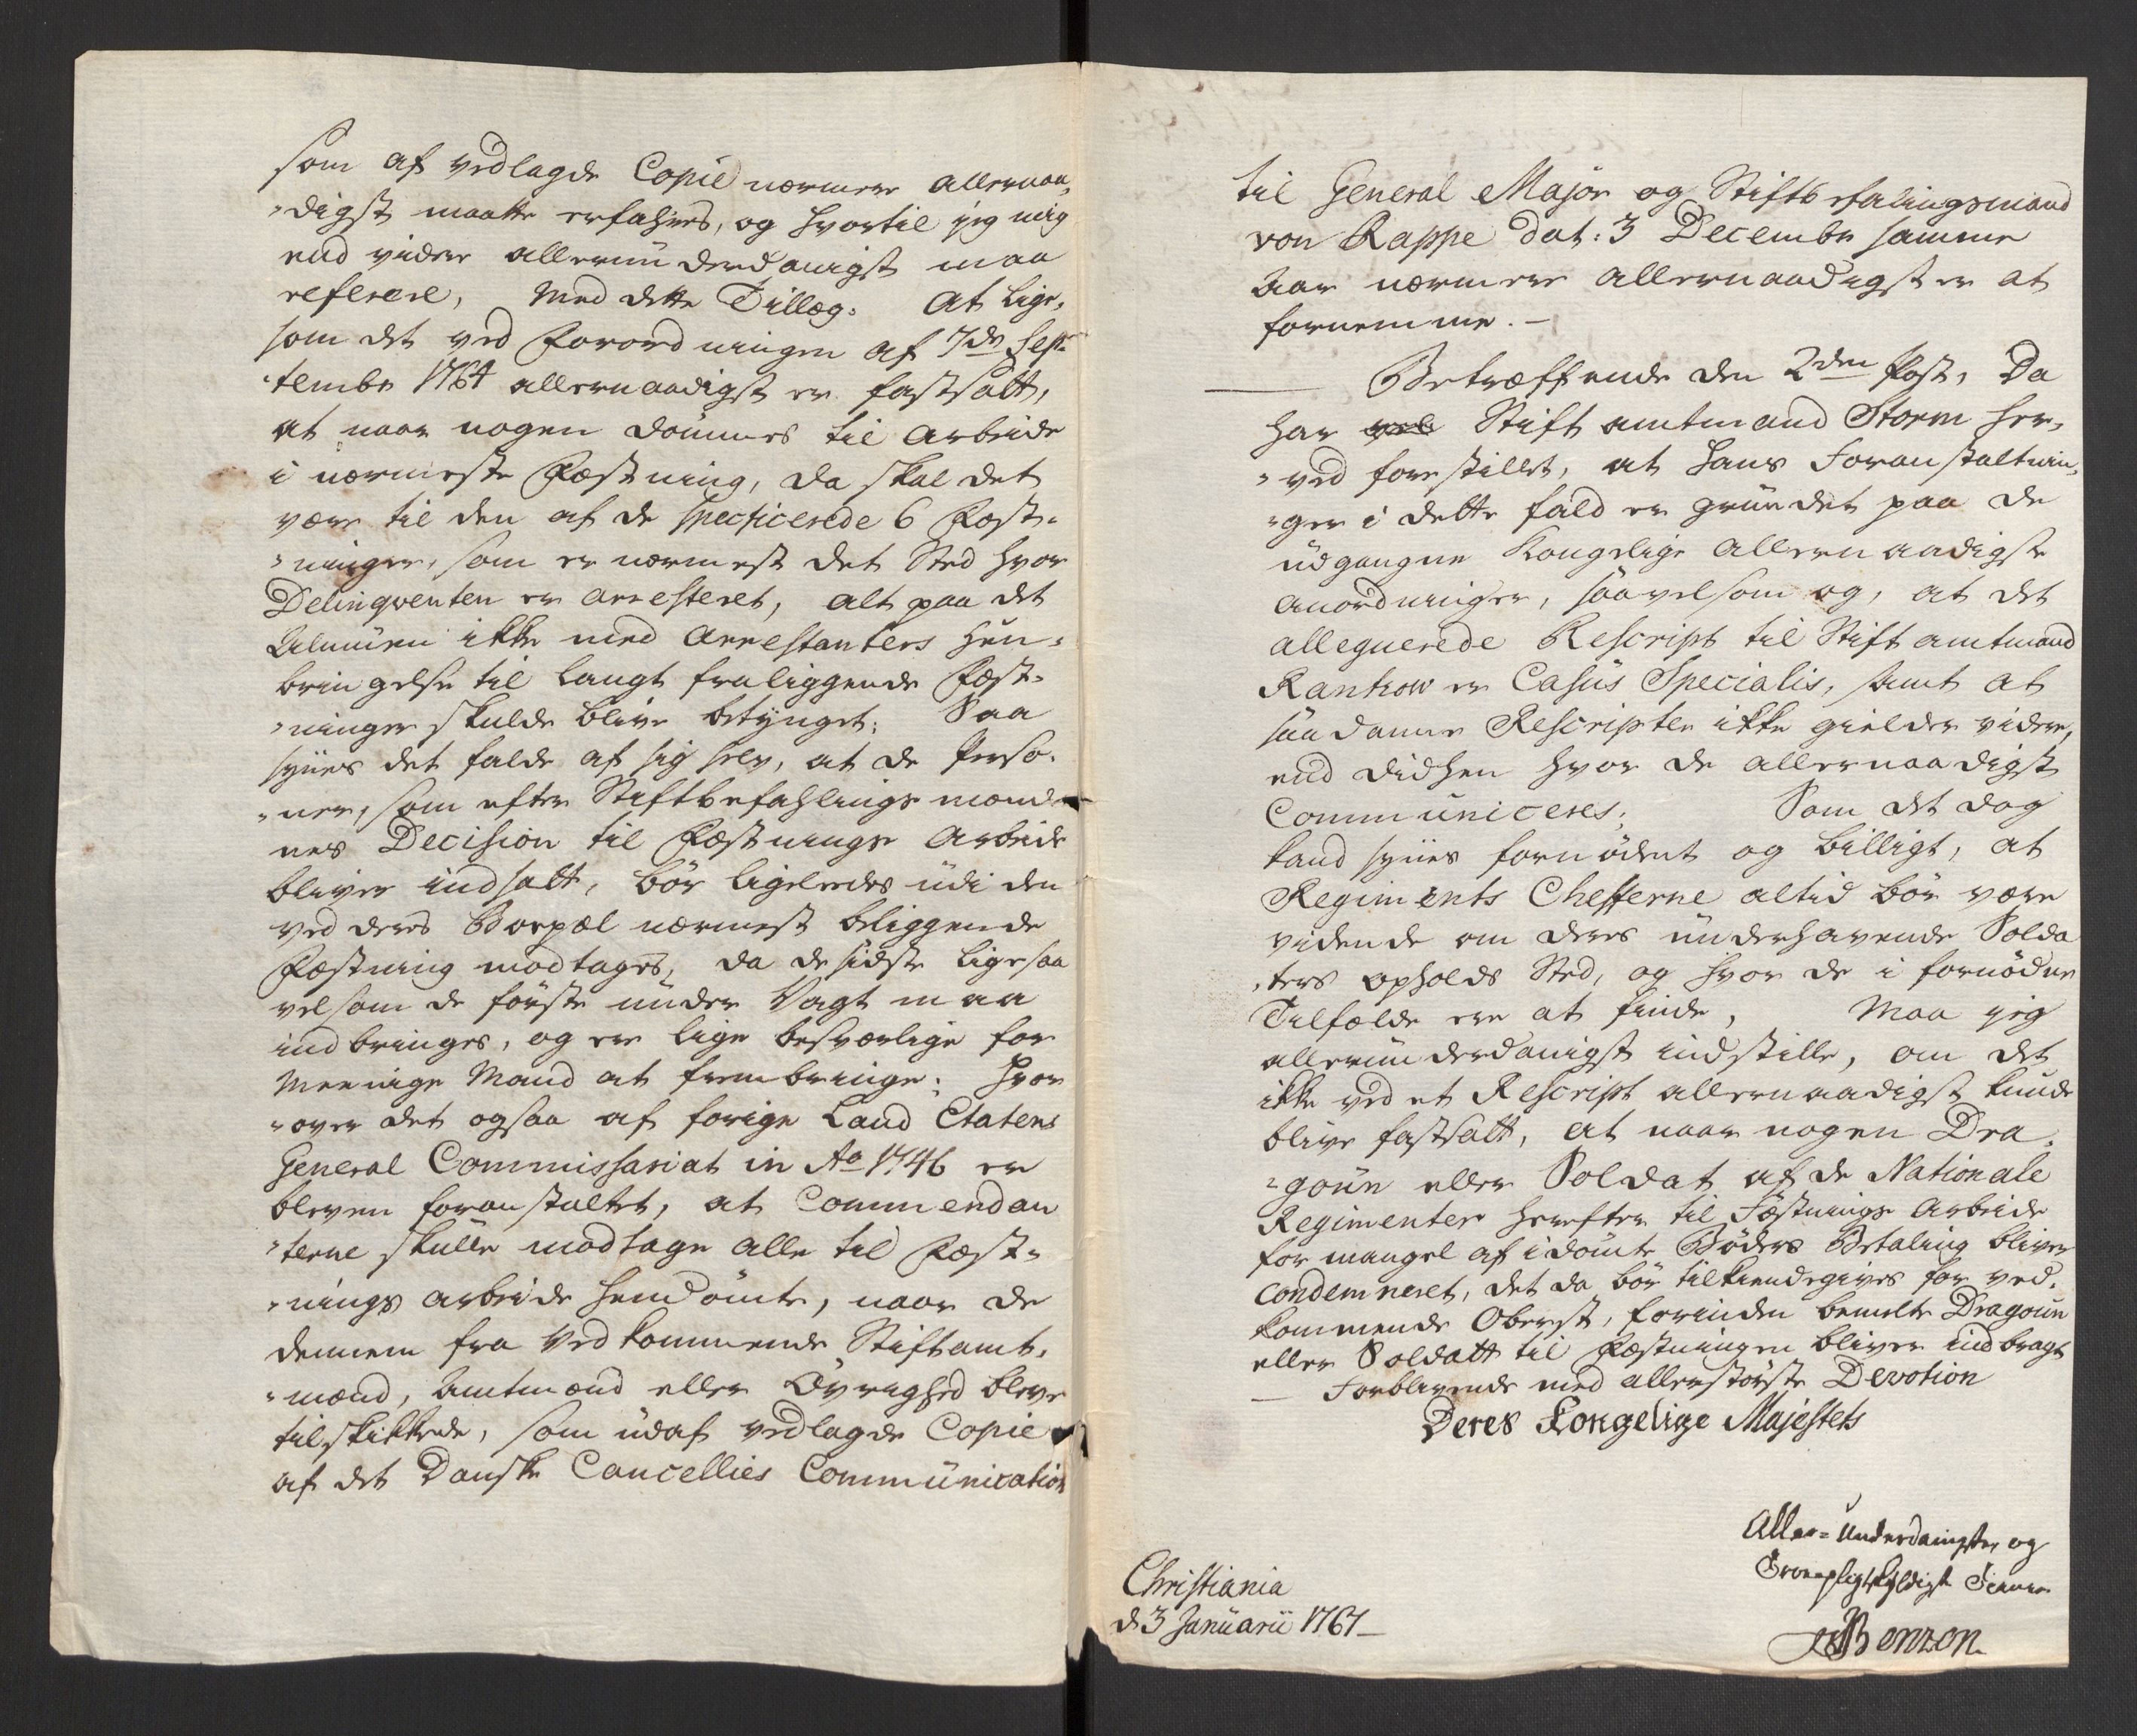 som af vedlagde Copie nærmere allernaa,
"digst maatte erfahres, og hvortil jeg mig
end videre alleründerdanigst maa
referere, Med dette Tillæg: At lige,
som det ved Forordningen af 7de Sep-
"tembr 1764 allernaadigst er fastsatt,
at naar nogen dömmes til Arbeide
i nærmeste Fæstning, da skal det
være til den af de specficerede 6 Fæst-
"ninger, som er nærmest det Sted hvor
Delinqventen er arresteret, alt paa det
Almüen ikke med Arrestanters hen-
bringelse til langt fraliggende Fæst-
"ninger skulde blive betynget; Saa
synes det falde af sig selv, at de Perso-
"ner, som efter Stiftbefahlingsmænde
nes Decision til Fæstnings Arbeide
bliver indsatt, bör ligeledes üdi den
ved deres Boepæl nærmest beliggende
Fæstning modtages, da de sidste ligesaa
vel som de förste ünder Vagt maa
indbringes, og ere lige besværlige for
Meenige Mand at frembringe; Hvor
"over det ogsaa af forige Land Etatens
General Commissariat in Ao 1746 er
bleven foranstaltet, at Commendan
"terne skulle modtage alle til Fæst-
"nings arbeide hendömte, naar de
dennem fra Vedkommende Stiftamt-
"mænd, Amtmænd eller Övrighed bleve
tilskikkede, som üdaf vedlagde Copie
af det Danske Cancellies Communication
til General Major og Stiftbefalingsmand
von Rappe dat: 3 Decembr samme
Aar nærmere allernaadigst er at
fornemme. -
Betræffende den 2den Post, Da
har Stiftamtmand Storm her,
"ved forestillet, at hans Foranstaltnin,
"ger i dette fald er gründet paa de
üdgangne Kongelige Allernaadigste
anordninger, saavelsom og, at det
allegverede Rescript til Stiftamtmand
Rantzow er Casüs Specialis, samt at
saadanne Rescripter ikke gielder videre,
end didhen hvor de allernaadigst
Commüniceres; Som det dog
kand synes fornödent og billigt, at
Regiments Chefferne altid bör være
vidende om deres ünderhavende Solda
"ters opholds Sted, og hvor de i fornödne
Tilfælde ere at finde, Maa jeg
alleründerdanigst indstille, om det
ikke ved et Rescript allernaadigst kunde
blive fastsatt, at naar nogen Dra-
"goün eller Soldat af de Nationale
Regimenter herefter til Fæstnings Arbeide
for mangel af idömte Böders Betaling bliver
condemneret, det da bör tilkiendegives for ved-
kommende Oberst, forinden bemelte Dragoün
eller Soldatt til Fæstningen bliver indbragt
Forblivende med allerstörste Devotion
Deres Kongelige Majestets
Aller-Underdanigster og
Troepligtskyldigste Tienere
Benzon
Christiania
d: 3 Januarii 1767